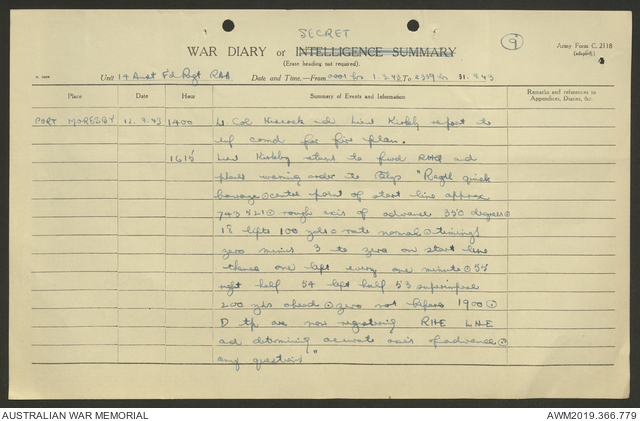 SECRET
WAR DIARY or INTELLIGENCE SUMMARY
9
Army Form C. 2118
(adapted)
(Erase heading not required).
Unit 14 Aust Fd Rgt RAA Date and Time.—From 0001 hrs 1.3.43 To 2359 hrs 31.3.43
Place Hour Summary of Events and Information Remarks and references to
Appendices, Diaries, &c.
PORT MORESBY 12.3.43 1400 Lt Col Hiscock and Lieut Kirkby report to
inf comd for fire plan.
1615 Lieut Kirkby returns to fwd RHQ and
warning order to Btys "Regtl quick
barrage ⊙ centre point of start line approx
743521 ⊙ rough axis of advance 350 degrees ⊙
18 lifts 100 yds ⊙ rate normal ⊙ timings
zero minus 3 to zero on start line
thence one lift every one minute ⊙ 55
right half 54 left half 53 superimposed
200 yds ahead ⊙ zero not before 1900 ⊙
D tp are now registering RHE LHE
and determining accurate axis of advance ⊙
any questions"
AUSTRALIAN WAR MEMORIAL
AWM2019.366.779